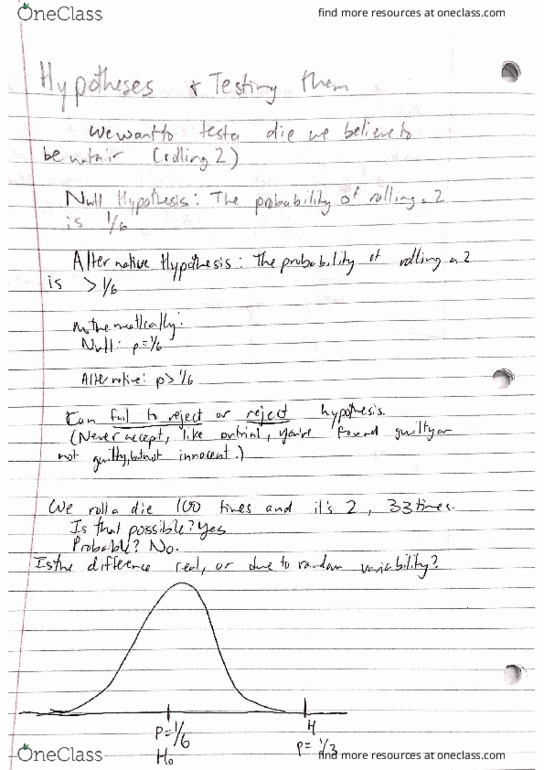 OneClass
find more resources at oneclass.com
Hypotheses & Testing them
We want to test a die we believe to
be unfair (rolling 2)
Null Hypothesis: The probability of rolling a 2
is 1/6
Alternative Hypothesis: The probability of rolling a 2
is > 1/6
Mathematically:
Null: p=1/6
Alternative: p>1/6
Can fail to reject or reject hypothesis.
(Never accept, like on trial, you're found guilty or
not guilty, but not innocent.)
We roll a die 100 times and it's 2, 33 times.
Is that possible? Yes
Probable? No.
Is the difference real, or due to random variability?
P=1/6
H₀
H
p= 1/3
OneClass
find more resources at oneclass.com